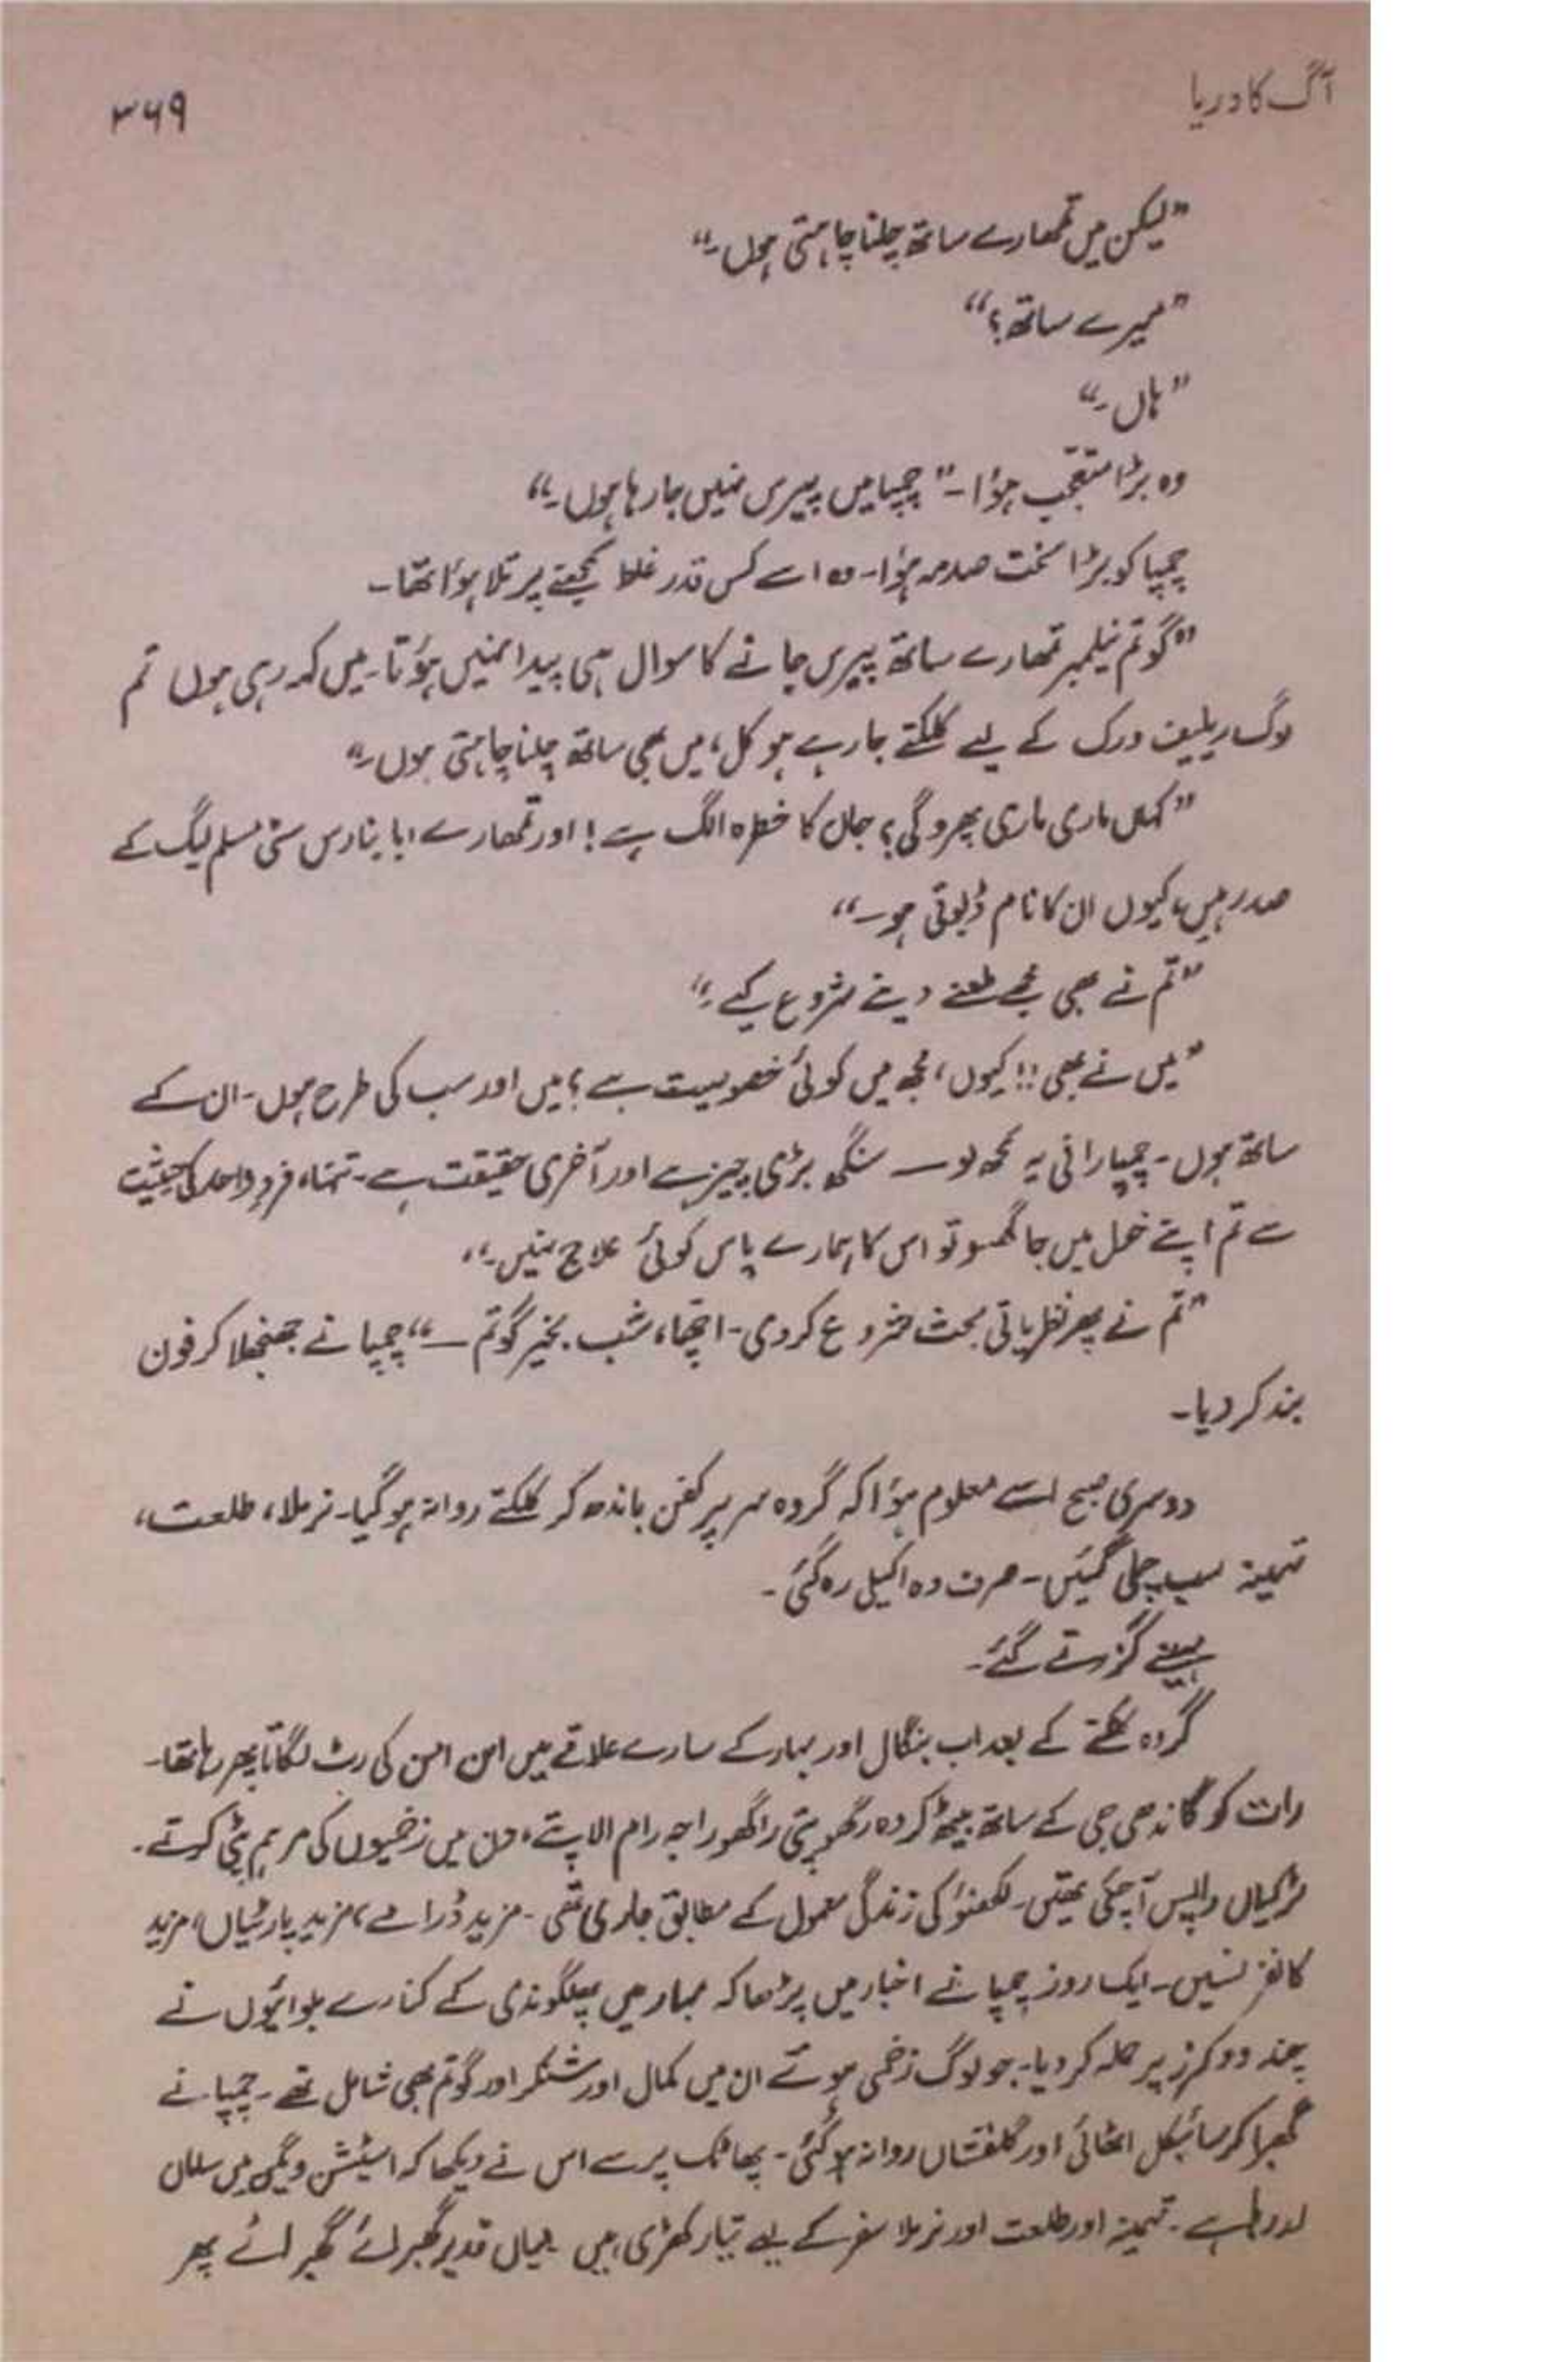 آگ کا دریا
۳۶۹
"لیکن میں تمھارے ساتھ چلنا چاہتی ہوں۔"
"میرے ساتھ؟"
"ہاں۔"
وہ بڑا متعجب ہؤا۔ "چمپا میں پیرس نہیں جا رہا ہوں۔"
چمپا کو بڑا سخت صدمہ ہؤا۔ وہ اسے کس قدر غلط سمجھنے پر تلا ہؤا تھا۔
"گوتم نیلمبر تمھارے ساتھ پیرس جانے کا سوال ہی پیدا نہیں ہوتا۔ میں کہہ رہی ہوں تم
لوگ ریلیف ورک کے لیے کلکتے جا رہے ہو کل، میں بھی ساتھ چلنا چاہتی ہوں۔"
"کہاں ماری ماری پھرو گی؟ جان کا خطرہ الگ ہے! اور تمھارے ابا بنارس سٹی مسلم لیگ کے
صدر ہیں، کیوں ان کا نام ڈبوتی ہو۔"
"تم نے بھی مجھے طعنے دینے شروع کیے۔"
"میں نے بھی!! کیوں، مجھ میں کوئی خصوصیت ہے؟ میں اور سب کی طرح ہوں۔ ان کے
ساتھ ہوں۔ چمپا رانی یہ سمجھ لو ـــ سنگھ بڑی چیز ہے اور آخری حقیقت ہے۔ تنہا، فردِ واحد کی حیثیت
سے تم اپنے خول میں جا گھسو تو اس کا ہمارے پاس کوئی علاج نہیں۔"
"تم نے پھر نظریاتی بحث شروع کر دی۔ اچھا، شب بخیر گوتم ـــ" چمپا نے جھنجھلا کر فون
بند کر دیا۔
دوسری صبح اسے معلوم ہؤا کہ گروہ سر پر کفن باندھ کر کلکتے روانہ ہو گیا۔ نرملا، طلعت،
تہمینہ سب چلی گئیں۔ صرف وہ اکیلی رہ گئی۔
مہینے گزرتے گئے۔
گروہ کلکتے کے بعد اب بنگال اور بہار کے سارے علاقے میں امن امن کی رٹ لگاتا پھر رہا تھا۔
رات کو گاندھی جی کے ساتھ بیٹھ کر وہ رگھوپتی راگھو راجہ رام الاپتے، دن میں زخمیوں کی مرہم پٹی کرتے۔
لڑکیاں واپس آ چکی تھیں۔ لکھنؤ کی زندگی معمول کے مطابق جاری تھی۔ مزید ڈرامے، مزید پارٹیاں، مزید
کانفرنسیں۔ ایک روز چمپا نے اخبار میں پڑھا کہ بہار میں پھلگو ندی کے کنارے بلوائیوں نے
چند ورکرز پر حملہ کر دیا۔ جو لوگ زخمی ہوئے ان میں کمال اور شنکر اور گوتم بھی شامل تھے۔ چمپا نے
گھبرا کر سائیکل اٹھائی اور گلفشاں روانہ ہو گئی۔ پھاٹک پر سے اس نے دیکھا کہ اسٹیشن ویگن میں سامان
لد رہا ہے۔ تہمینہ اور طلعت اور نرملا سفر کے لیے تیار کھڑی ہیں میاں قدیر گھبرائے گھبرائے پھر